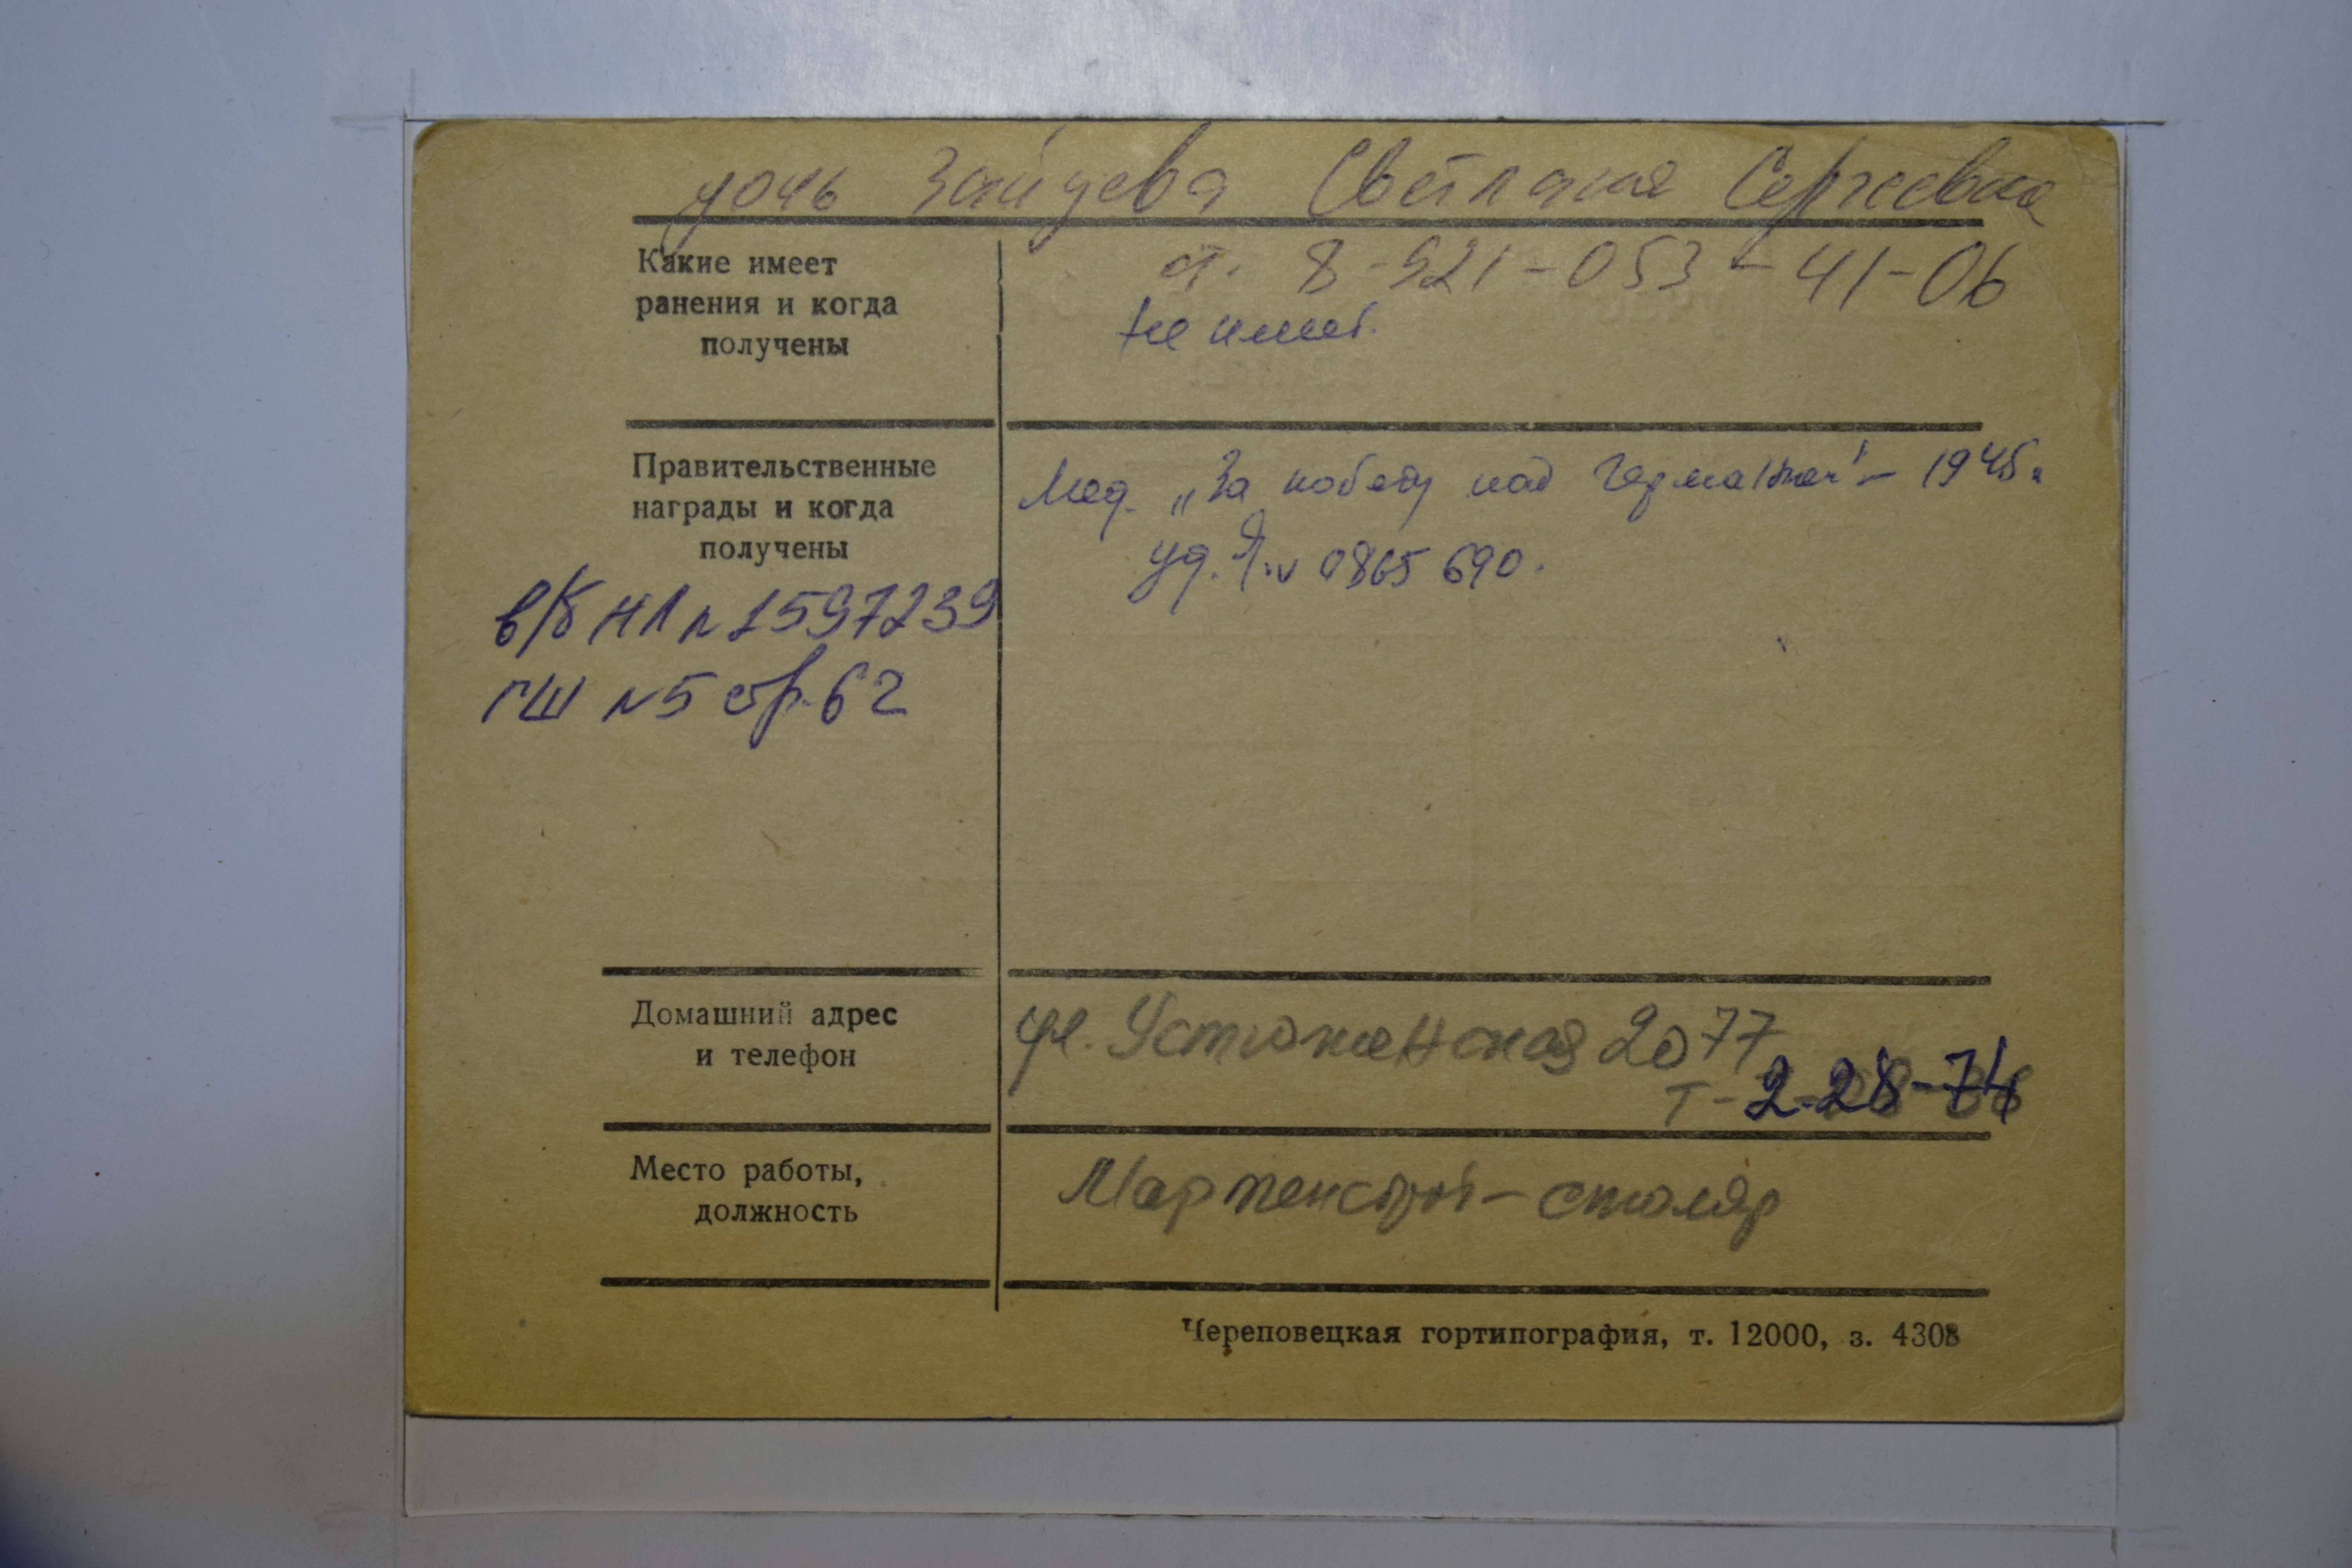 дочь Зайцева Светлана Сергеевна
Какие имеет
ранения и когда
получены
т. 8-921-053-41-06
Не имеет.
Правительственные
награды и когда
получены
Мед. „За победу над Германией" - 1945г.
уд. № 0865690.
в/б НЛ № 1597239
ГШ №5 стр. 62
Домашний адрес
и телефон
ул. Устюженская 20 77
т-2-28-74
Место работы,
должность
Мартенстрой - столяр
Череповецкая гортипография, т. 12000, з. 4308